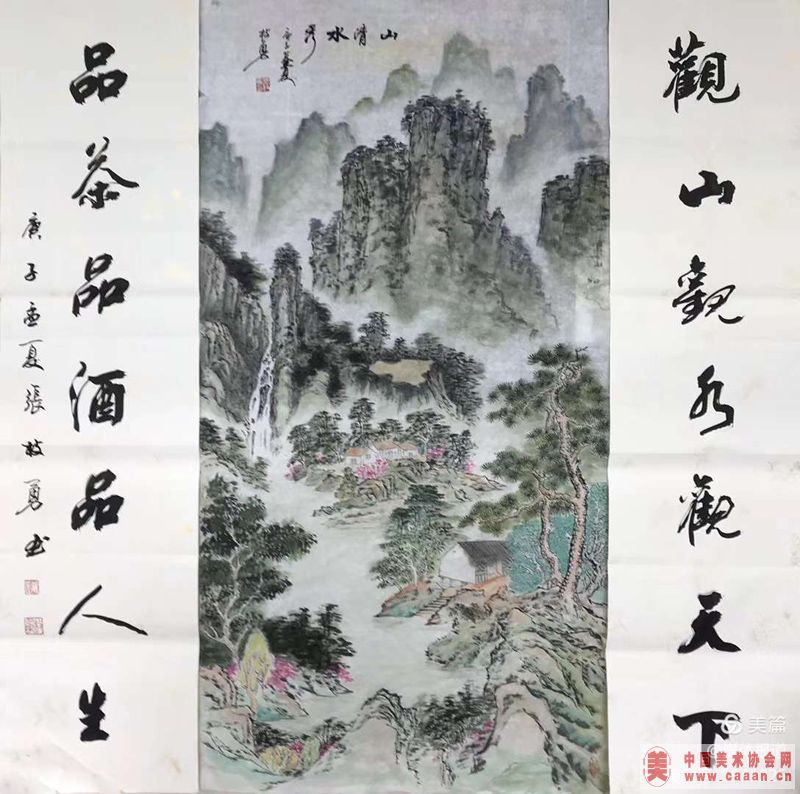 觀山觀水觀天下
山清水秀
庚子孟夏
枝勇
品茶品酒品人生
庚子孟夏張枝勇书
美篇
美
中国美术协会网
www.caaan.cn